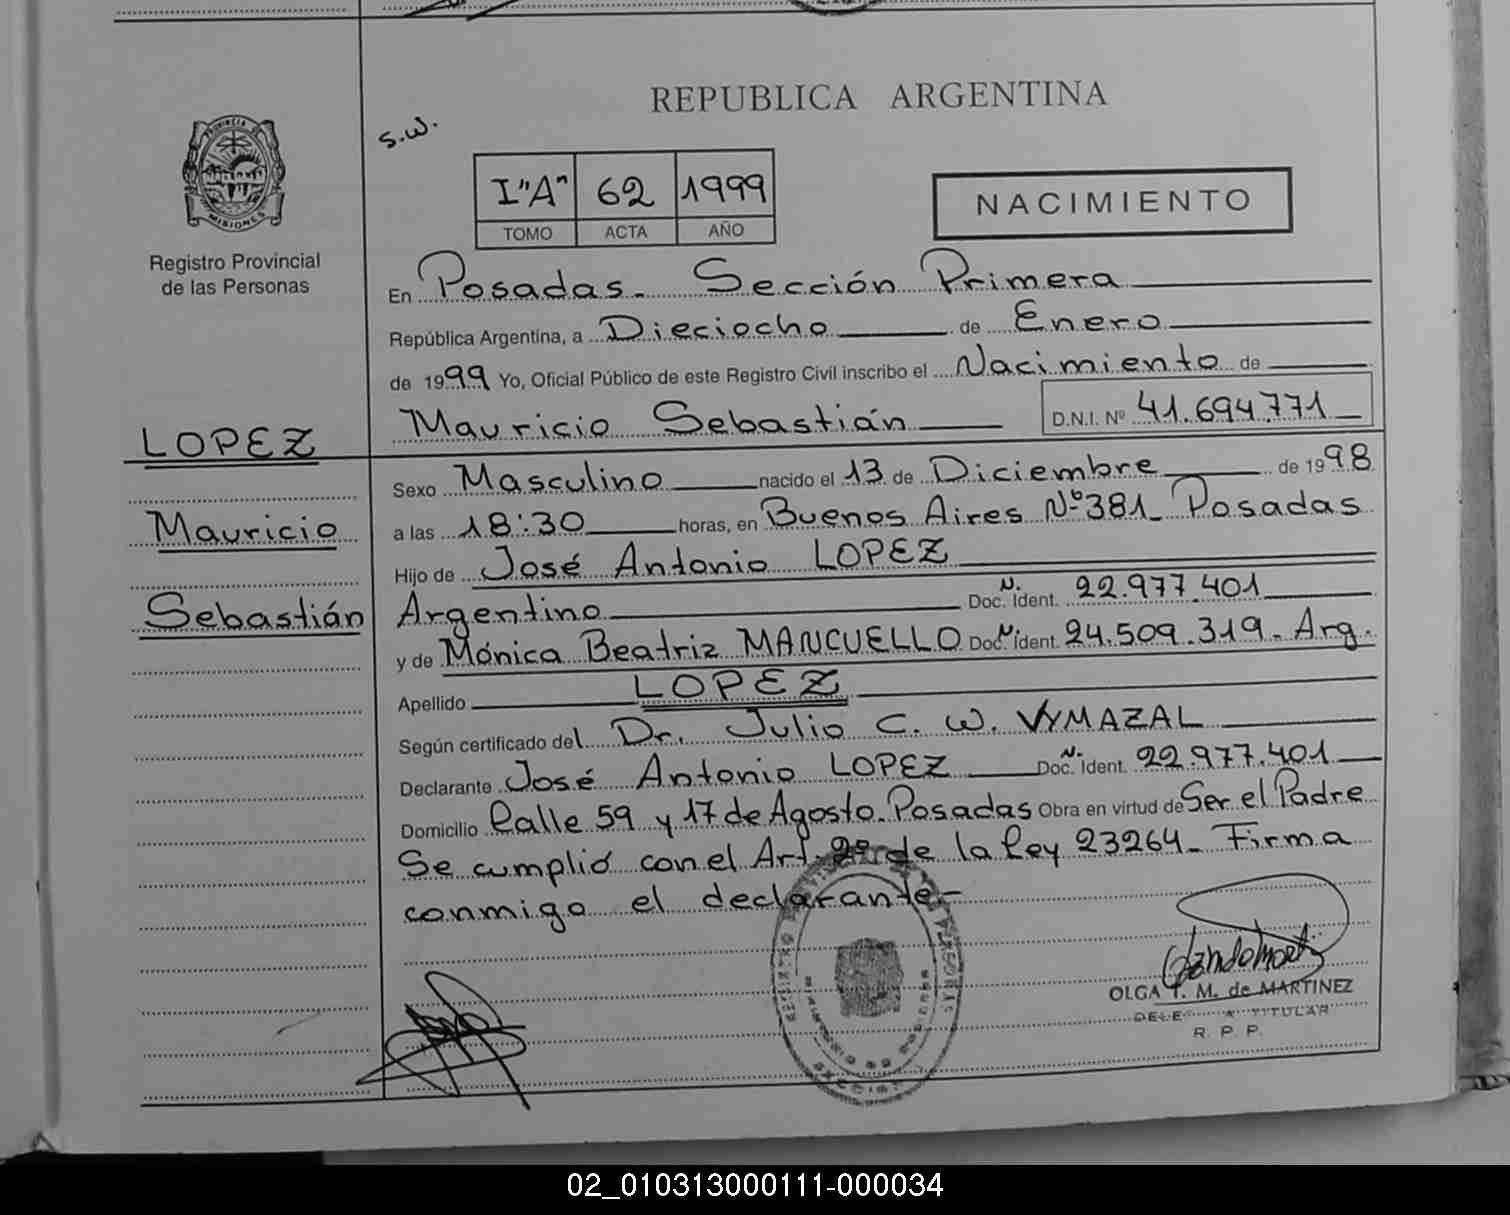 REPUBLICA ARGENTINA
S.W.
PROVINCIA DE
MISIONES
Registro Provincial
de las Personas
I "A" 62 1999
TOMO ACTA AÑO
NACIMIENTO
En Posadas. Sección Primera
República Argentina, a Dieciocho de Enero
de 1999 Yo, Oficial Público de este Registro Civil inscribo el Nacimiento de
Mauricio Sebastián D.N.I. Nº 41.694.771
LOPEZ
Mauricio
Sebastián
Sexo Masculino nacido el 13 de Diciembre de 1998
a las 18:30 horas, en Buenos Aires Nº 381_ Posadas
Hijo de José Antonio LOPEZ
Argentino Doc. N. Ident. 22.977.401
y de Mónica Beatriz MANCUELLO Doc. N. Ident. 24.509.319. Arg.
Apellido LOPEZ
Según certificado del Dr. Julio C. W. VYMAZAL
Declarante José Antonio LOPEZ Doc. N. Ident. 22.977.401
Domicilio Calle 59 y 17 de Agosto. Posadas Obra en virtud de Ser el Padre
Se cumplió con el Art. 2º de la Ley 23264_ Firma
conmigo el declarante.-
OLGA T. M. de MARTINEZ
TITULAR
R. P. P.
02_010313000111-000034